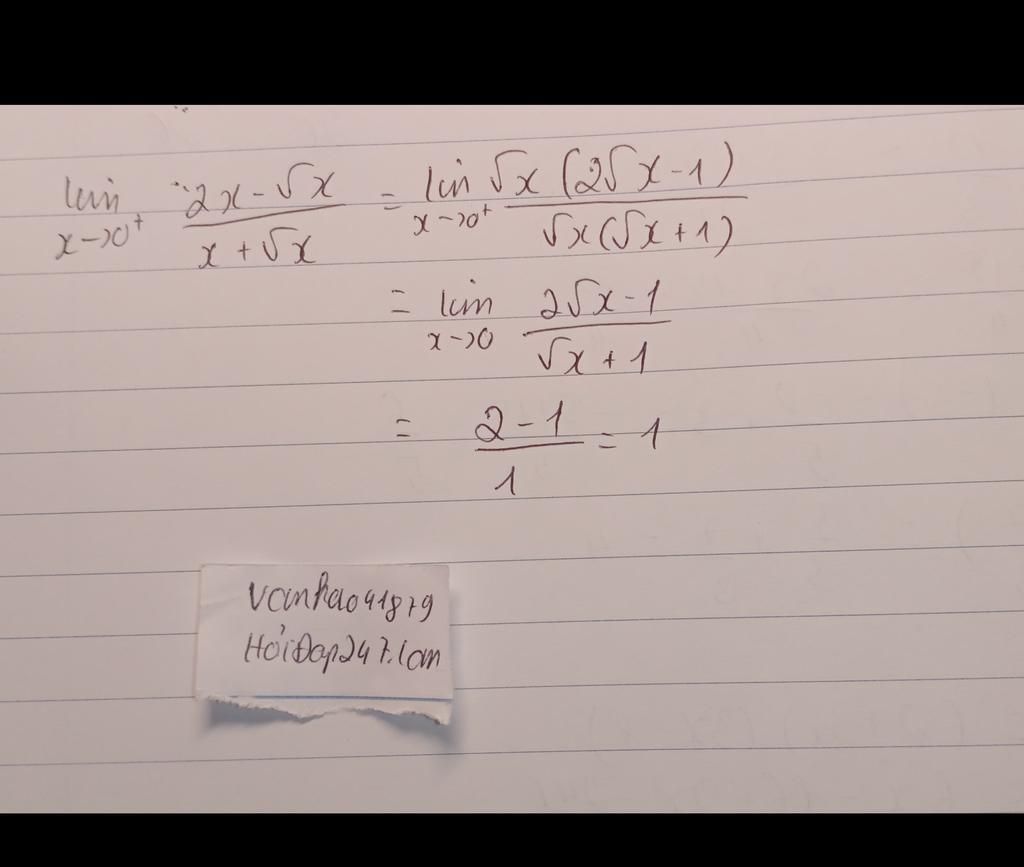 lim x→0⁺ (2x-√x)/(x+√x) = lim x→0⁺ (√x(2√x-1))/(√x(√x+1))
= lim x→0 (2√x-1)/(√x+1)
= (2-1)/1 = 1
vanhao41879
HỏiĐap247.com